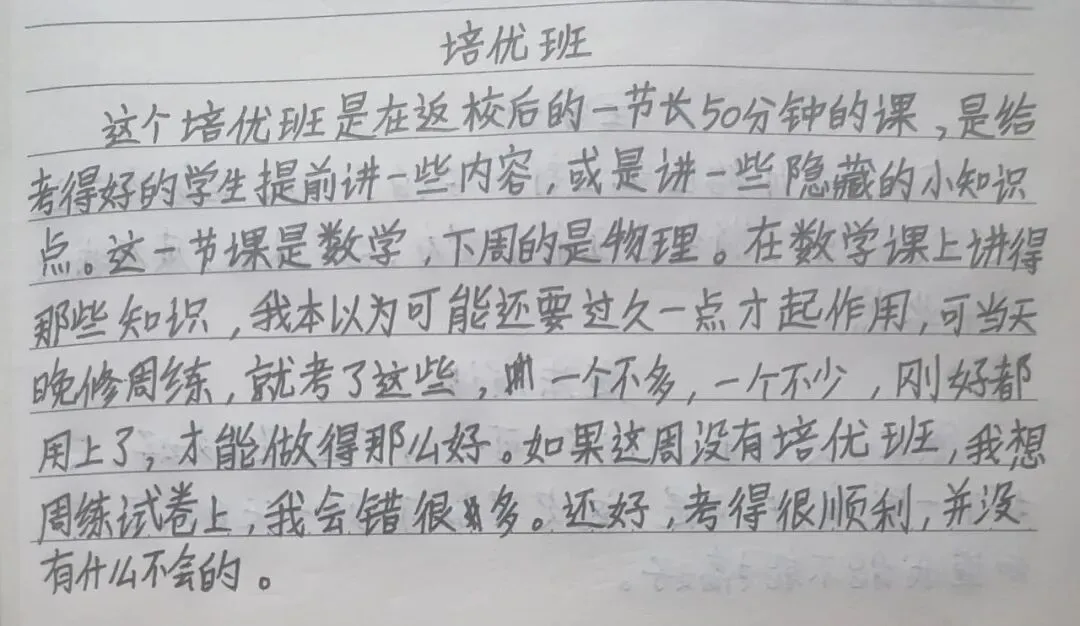 培优班
这个培优班是在返校后的一节长50分钟的课,是给
考得好的学生提前讲一些内容,或是讲一些隐藏的小知识
点。这一节课是数学,下周的是物理。在数学课上讲得
那些知识,我本以为可能还要过久一点才起作用,可当天
晚修周练,就考了这些,一个不多,一个不少,刚好都
用上了,才能做得那么好。如果这周没有培优班,我想
周练试卷上,我会错很多。还好,考得很顺利,并没
有什么不会的。